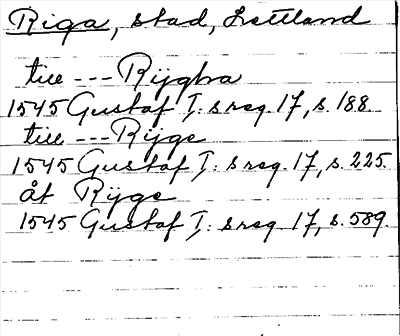 Riga, stad, Lettland
till --- Rijgha
1545 Gustaf I: s reg. 17, s. 188.
till --- Rijge
1545 Gustaf I: s reg. 17, s. 225.
åt Rijge
1545 Gustaf I: s reg. 17, s. 589.